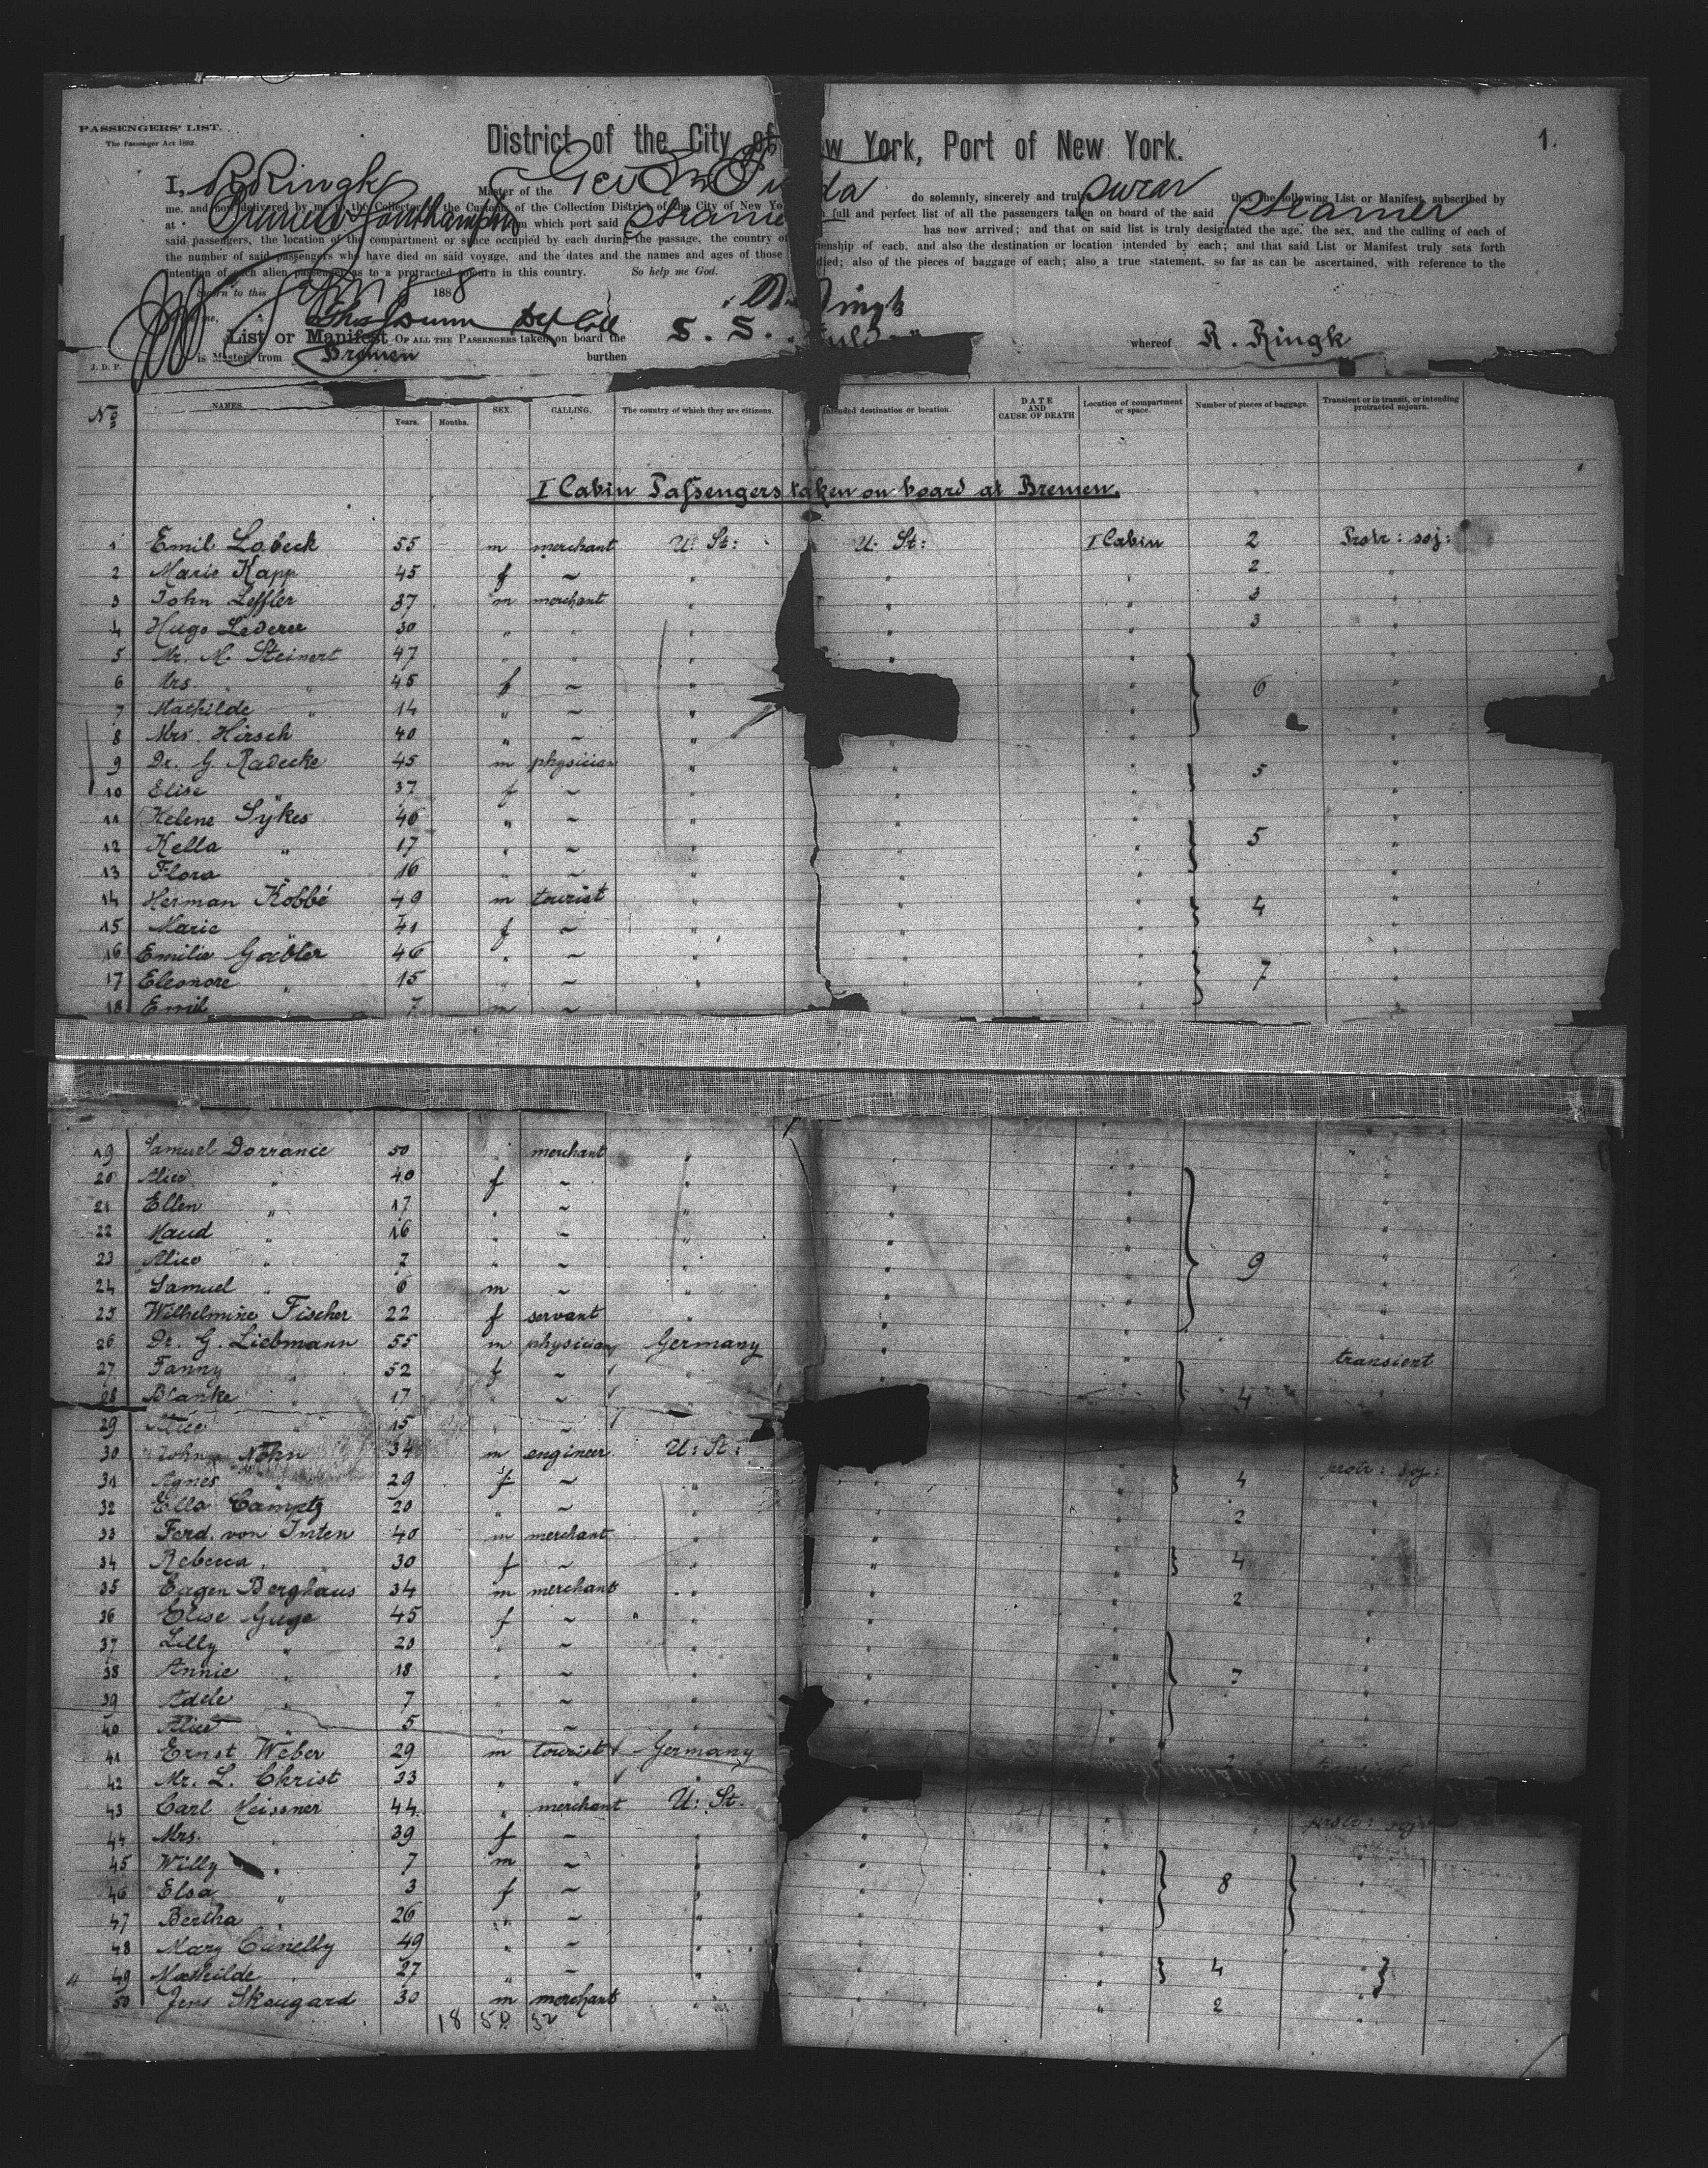 PASSENGERS' LIST.
The Passenger Act 1882.
District of the City of w York, Port of New York.
1.
I, R Ringk Master of the Ger St Fulda do solemnly, sincerely and truly swear that the following List or Manifest, subscribed by
me, and now delivered by me to the Collector of the Customs of the Collection District of the City of New Yo full and perfect list of all the passengers taken on board of the said steamer
at Bremen & Southampton from which port said Steame has now arrived; and that on said list is truly designated the age, the sex, and the calling of each of
said passengers, the location of the compartment or space occupied by each during the passage, the country of ienship of each, and also the destination or location intended by each; and that said List or Manifest truly sets forth
the number of said passengers who have died on said voyage, and the dates and the names and ages of those died; also of the pieces of baggage of each; also a true statement, so far as can be ascertained, with reference to the
intention of each alien passenger as to a protracted sojourn in this country. So help me God.
Sworn to this 1888 R. Ringk
me,
List or Manifest OF ALL THE PASSENGERS taken on board the S. S. Fulda" whereof R. Ringk
is Master, from Bremen burthen
J. D. P.
No NAMES. Years. Months. SEX. CALLING. The country of which they are citizens. Intended destination or location. DATE AND CAUSE OF DEATH Location of compartment or space. Number of pieces of baggage. Transient or in transit, or intending protracted sojourn.
I Cabin Passengers taken on board at Bremen.
1 Emil Lobeck 55 m merchant U: St: U: St: I Cabin 2 Protr: soj:
2 Marie Kapp 45 f ~ " " " 2 "
3 John Leffler 37 m merchant " " " 3 "
4 Hugo Lederer 30 " " " " " 3 "
5 Mr. M. Steinert 47 " " " " " "
6 Mrs. " 45 f ~ " " 6 "
7 Mathilde " 14 " ~ " "
8 Mrs. Hirsch 40 " ~ " " " "
9 Dr. G. Radecke 45 m physician " " " 5 "
10 Elise " 37 f ~ " " " "
11 Helene Sykes 46 " ~ " " " "
12 Kella " 17 " ~ " " " 5 "
13 Flora " 16 " ~ " " " "
14 Herman Kobbé 49 m tourist " " " 4 "
15 Marie " 41 f ~ " " " "
16 Emilie Gaebler 46 " ~ " " " "
17 Eleonore " 15 " ~ " " " 7 "
18 Emil 7 m ~ " " "
19 Samuel Dorrance 50 " merchant " " " "
20 Alice " 40 f ~ " " " "
21 Ellen " 17 " ~ " " " "
22 Maud " 16 " ~ " " " "
23 Alice " 7 " ~ " " " 9 "
24 Samuel " 6 m ~ " " " "
25 Wilhelmine Fischer 22 f servant " " " "
26 Dr. G. Liebmann 55 m physician Germany " " transient
27 Fanny " 52 f ~ " " " "
28 Blanke " 17 " ~ " " 4 "
29 Alice " 15 " ~ "
30 John Nohn 34 m engineer U: St: protr: soj:
31 Agnes " 29 f ~ " " " 4 "
32 Ella Camptz 20 " ~ " " " 2 "
33 Ferd. von Inten 40 m merchant " " " "
34 Rebecca " 30 f ~ " " " 4 "
35 Eugen Berghaus 34 m merchant " " " 2 "
36 Elise Guge 45 f ~ " " " "
37 Lilly " 20 " ~ " " " "
38 Annie " 18 " ~ " " " 7 "
39 Adele " 7 " ~ " " " "
40 Alice " 5 " ~ " " " "
41 Ernst Weber 29 m tourist Germany " " 2 transient
42 Mr. L. Christ 33 " " "
43 Carl Meissner 44 " merchant U: St. " " protr: soj:
44 Mrs. " 39 f ~ " " "
45 Willy " 7 m ~ " " " "
46 Elsa " 3 f ~ " " " 8 "
47 Bertha " 26 " ~ " " " "
48 Mary Canelly 49 " ~ " " " "
49 Mathilde " 27 " ~ " " " 4 "
50 Jens Skougard 30 m merchant " " " 2 "
18 50 32